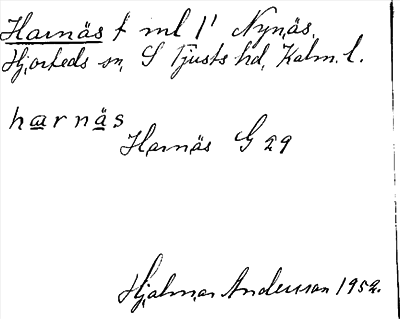 Harnäs f ml 1' Nynäs,
Hjorteds sn, S Tjusts hd, Kalm. l.
harnäs
Harnäs G 29
Hjalmar Andersson 1952.